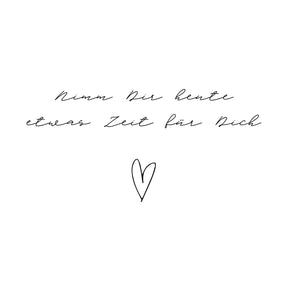 Nimm Dir heute
etwas Zeit für Dich